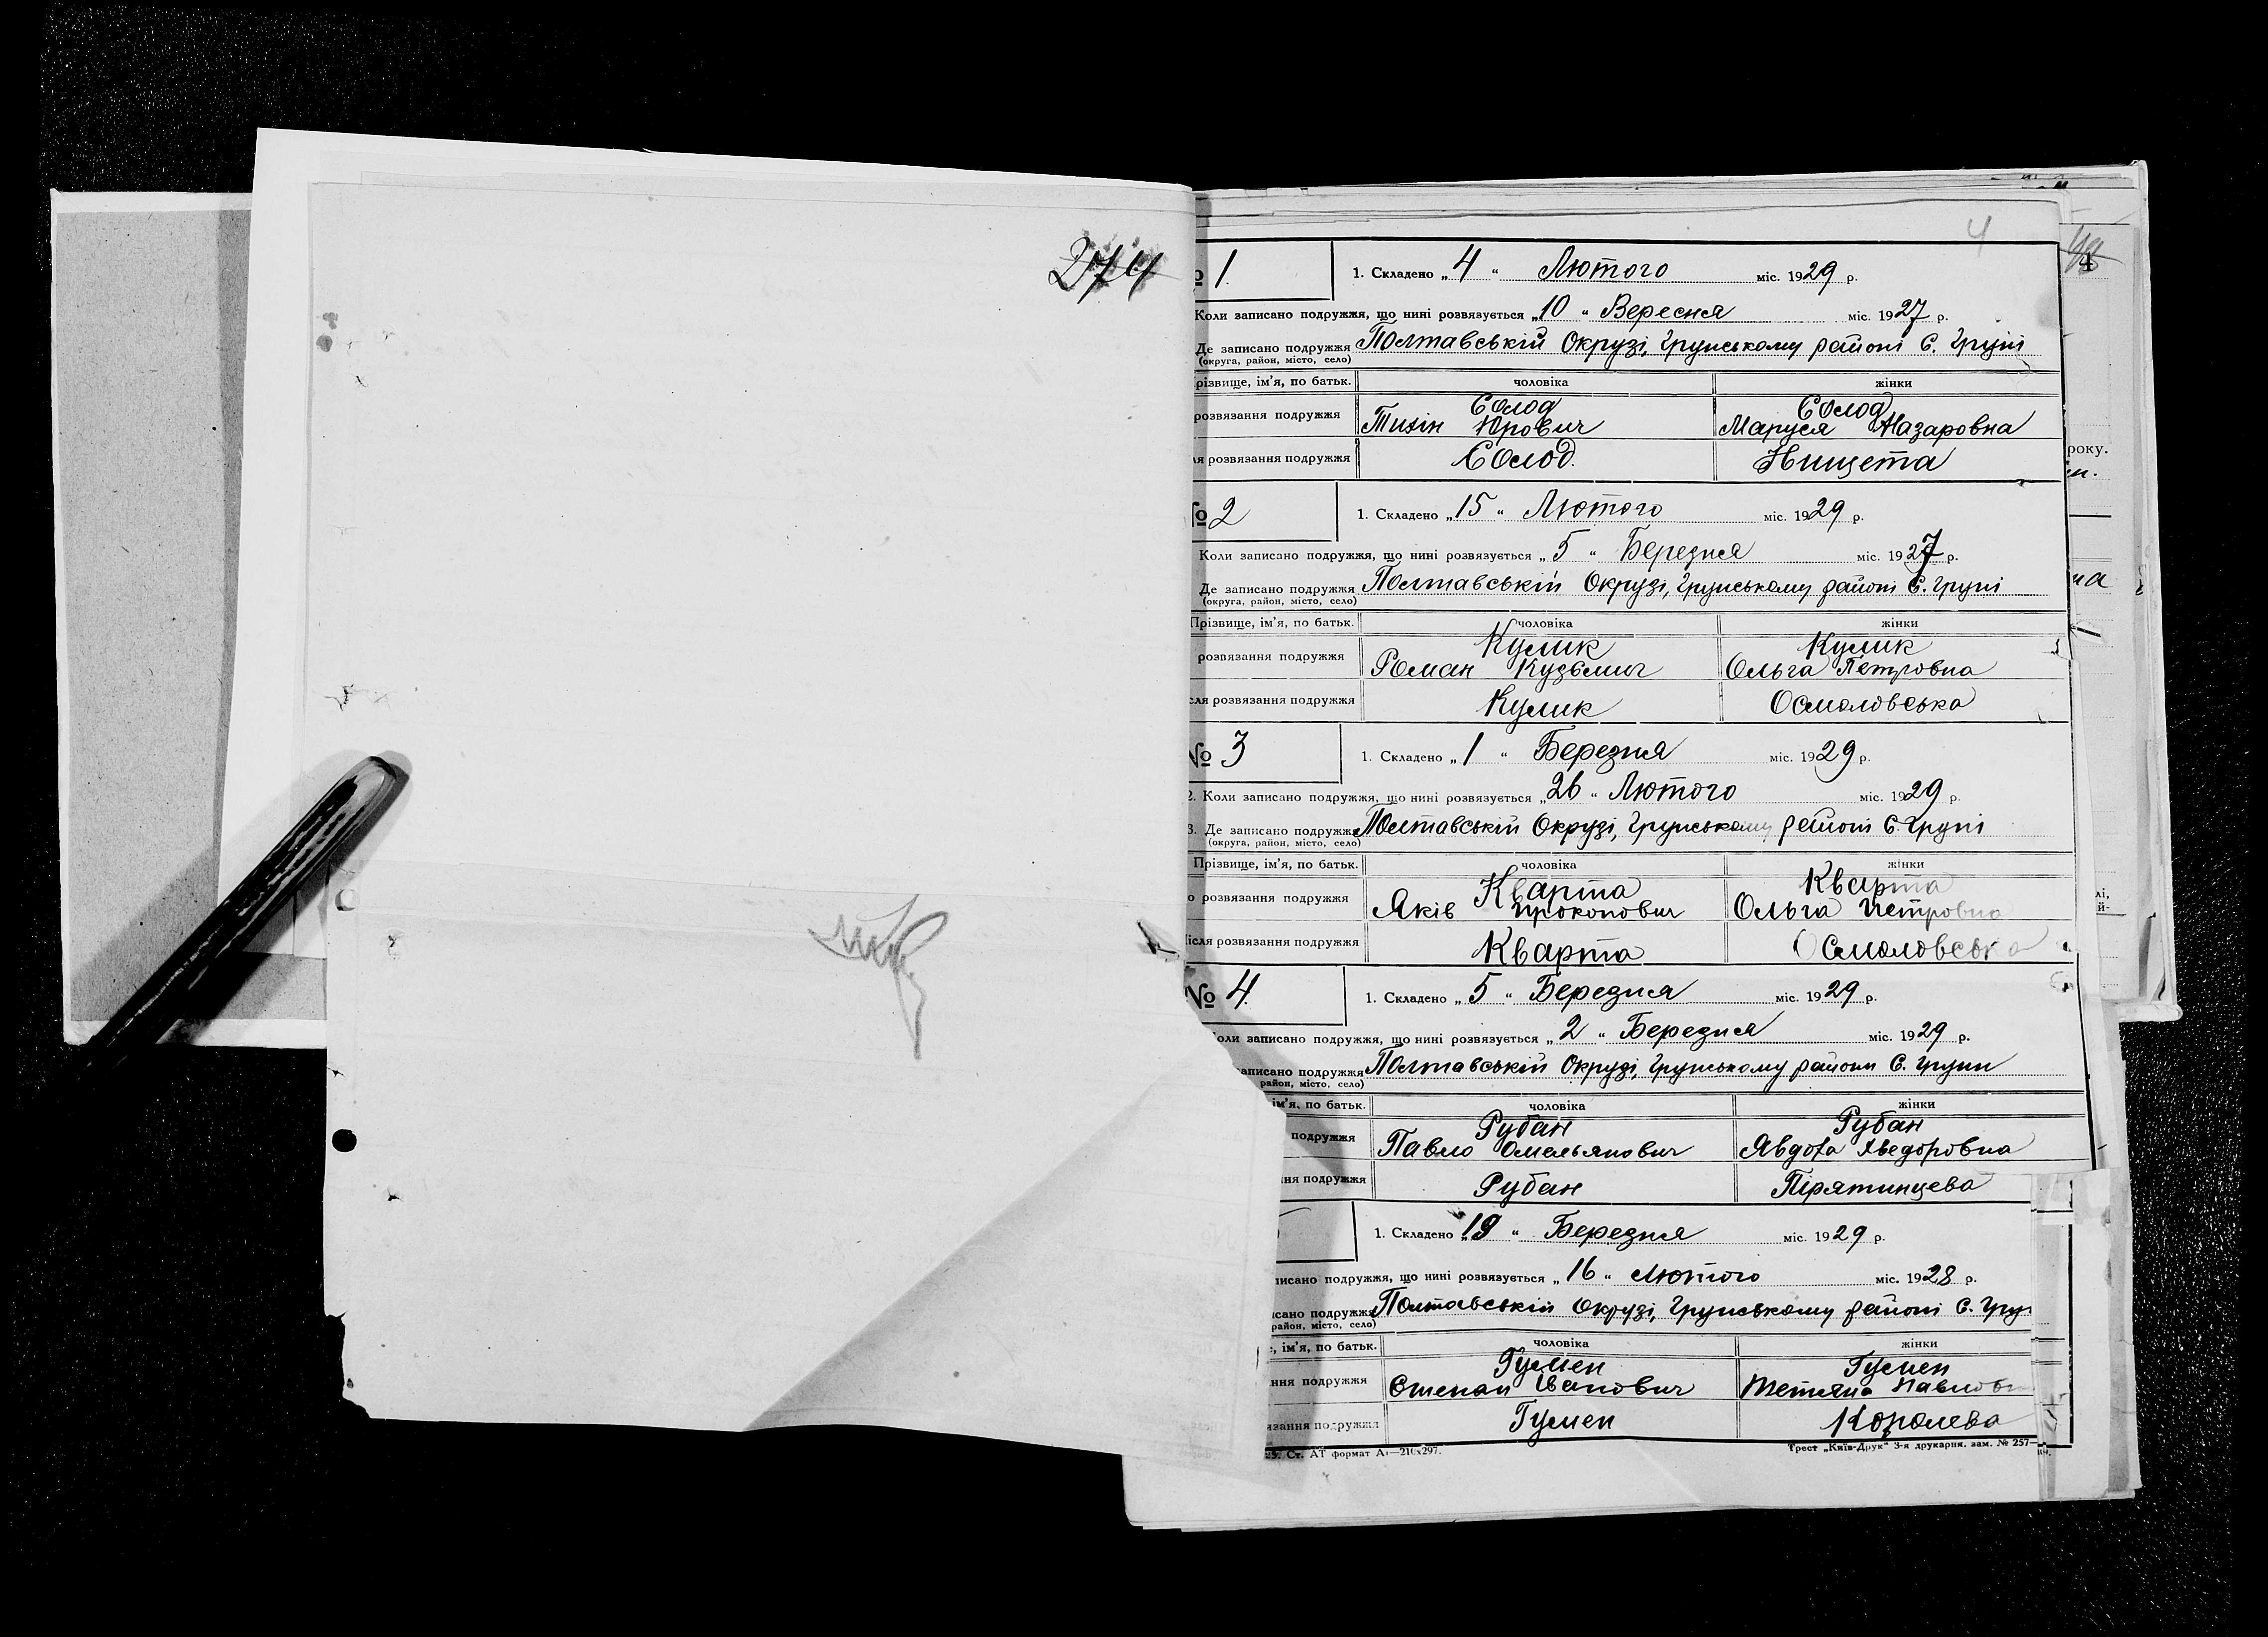 4
№ 1.
1. Складено „ 4 “ Лютого міс. 1929 р.
Коли записано подружжя, що нині розвязується „ 10 “ Вересня міс. 1927 р.
Де записано подружжя Полтавській Окрузі, Грунському районі С. Груні
(округа, район, місто, село)
Прізвище, ім'я, по батьк. чоловіка жінки
розвязання подружжя Солод Тихін Юрович Солод Маруся Назаровна
ля розвязання подружжя Солод. Нищета
№ 2
1. Складено „ 15 “ Лютого міс. 1929 р.
Коли записано подружжя, що нині розвязується „ 5 “ Березня міс. 1927 р.
Де записано подружжя Полтавській Окрузі, Грунському районі С. Груні
(округа, район, місто, село)
Прізвище, ім'я, по батьк. чоловіка жінки
розвязання подружжя Кулик Роман Кузьмич Кулик Ольга Петровна
сля розвязання подружжя Кулик Осмоловська
№ 3
1. Складено „ 1 “ Березня міс. 1929 р.
2. Коли записано подружжя, що нині розвязується „ 26 “ Лютого міс. 1929 р.
3. Де записано подружжя Полтавській Окрузі, Грунському районі С. Груні
(округа, район, місто, село)
Прізвище, ім'я, по батьк. чоловіка жінки
о розвязання подружжя Кварта Яків Прокопович Кварта Ольга Петровна
ісля розвязання подружжя Кварта Осмоловська
№ 4.
1. Складено „ 5 “ Березня міс. 1929 р.
оли записано подружжя, що нині розвязується „ 2 “ Березня міс. 1929 р.
аписано подружжя Полтавській Окрузі, Грунському районі С. Груни
район, місто, село)
ім'я, по батьк. чоловіка жінки
подружжя Рубан Павло Омельянович Рубан Явдоха Хведоровна
ня подружжя Рубан Пірятинцева
1. Складено „ 19 “ Березня міс. 1929 р.
писано подружжя, що нині розвязується „ 16 “ Лютого міс. 1928 р.
исано подружжя Полтавській Окрузі, Грунському районі С. Грун
район, місто, село)
, ім'я, по батьк. чоловіка жінки
ння подружжя Гумен Степан Іванович Гумен Тетяна Павловн
язання подружжя Гумен Королева
Ст. АТ формат А₄—210х297.
Трест „Київ-Друк“ 3-я друкарня. зам. № 257—
року.